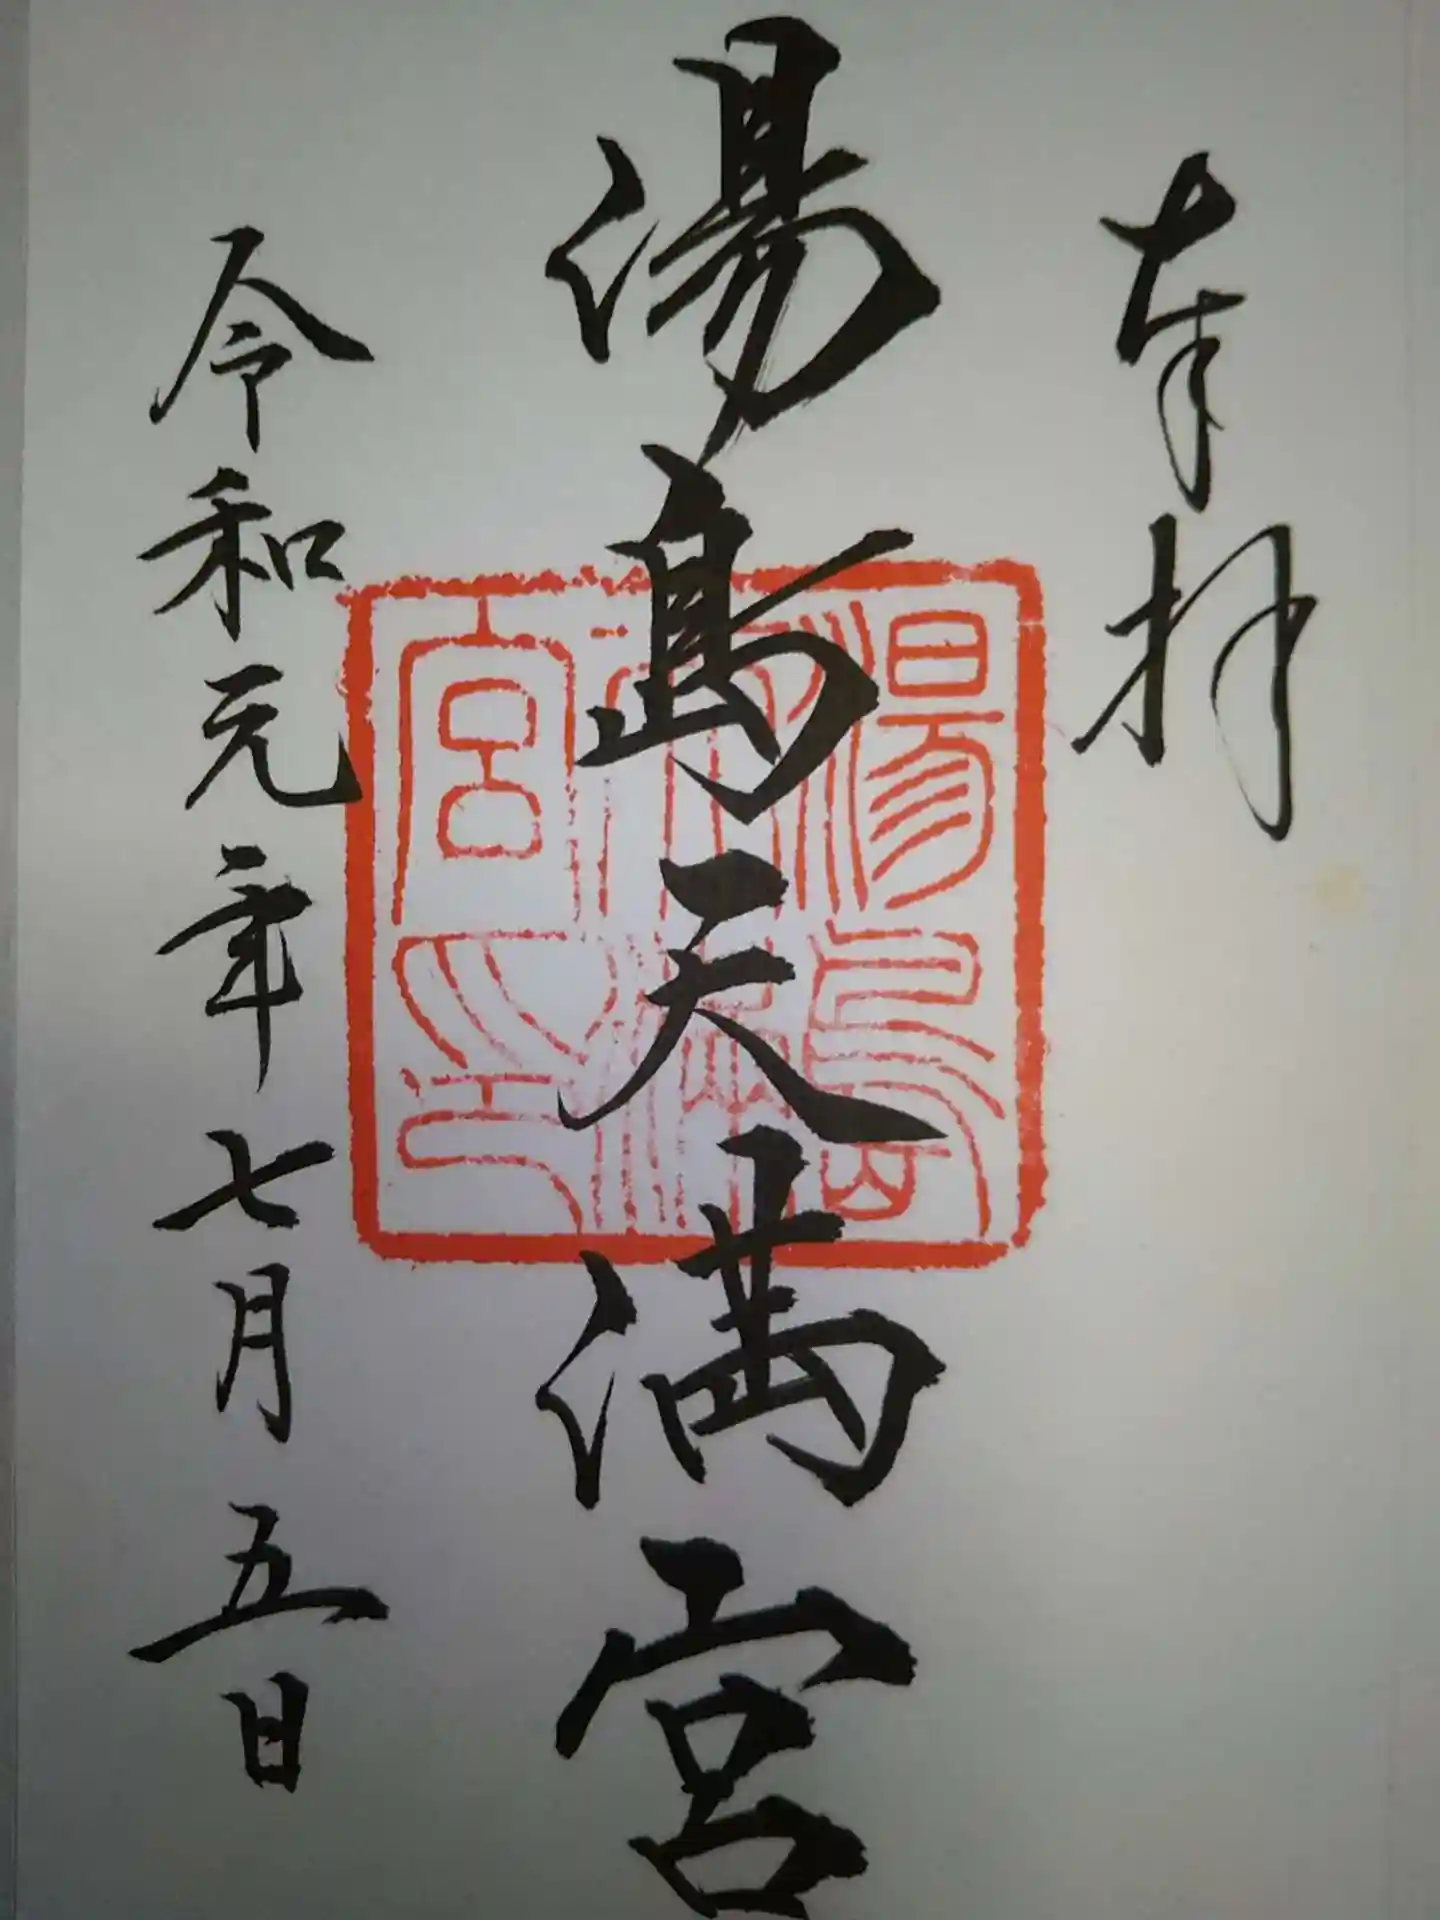 奉拝
湯島天満宮
令和元年七月五日
湯島天満宮之印